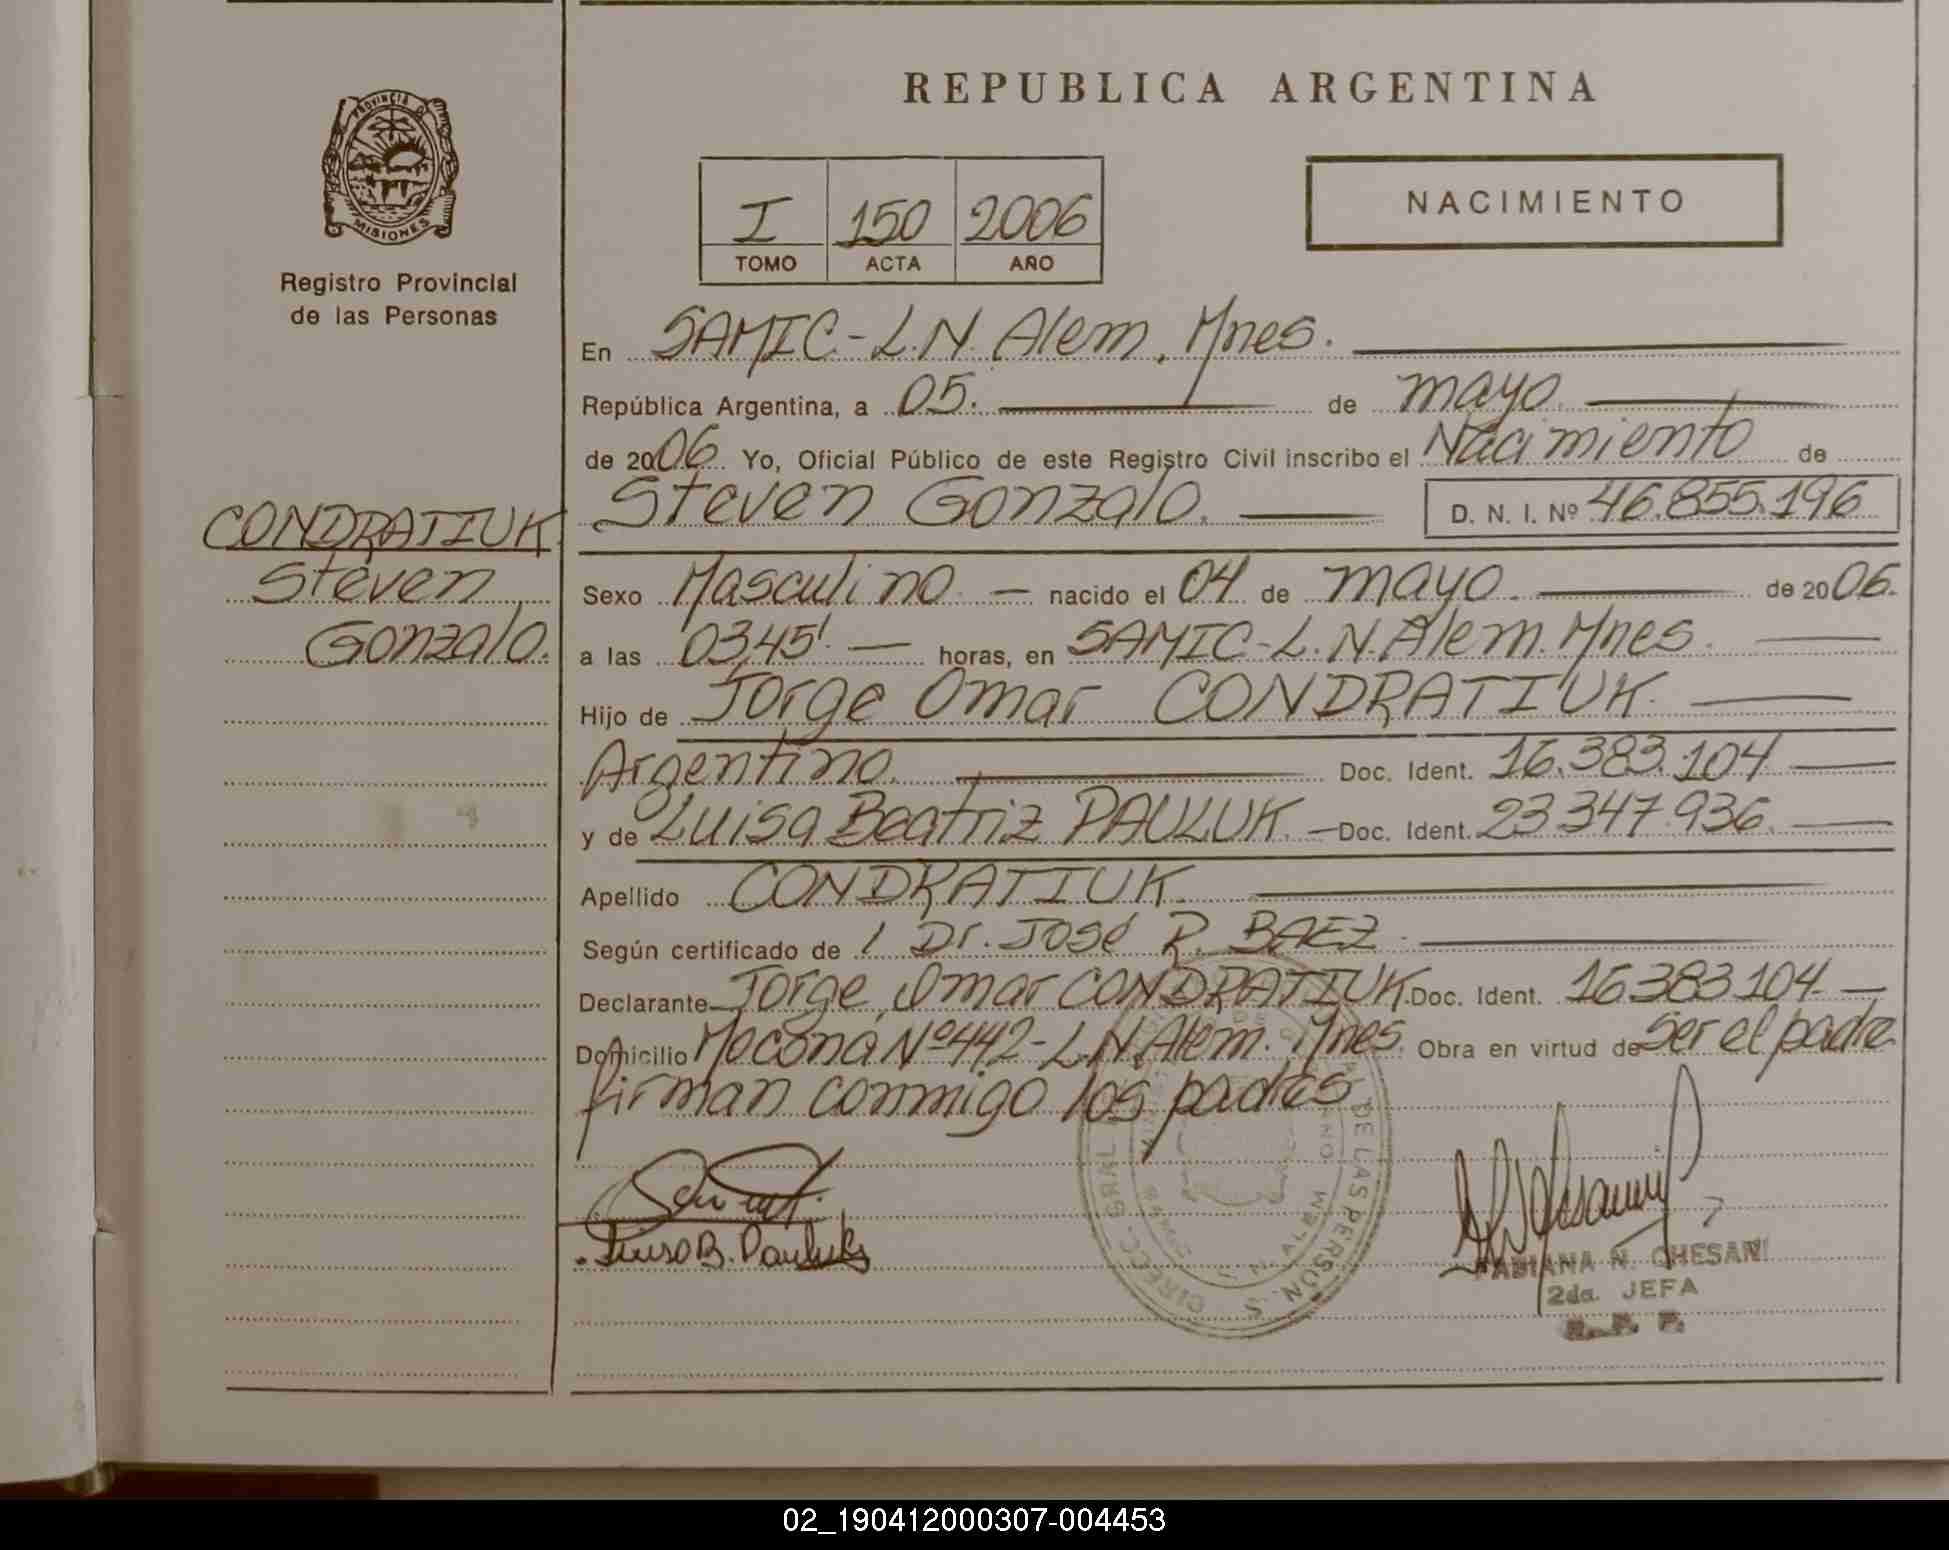 REPUBLICA ARGENTINA
PROVINCIA DE
MISIONES
Registro Provincial
de las Personas
I 150 2006
TOMO ACTA AÑO
NACIMIENTO
En SAMIC-L.N. Alem. Mnes.
República Argentina, a 05. de mayo
de 2006 Yo, Oficial Público de este Registro Civil inscribo el Nacimiento de
Steven Gonzalo. D. N. I. Nº 46.855.196
CONDRATIUK
Steven
Gonzalo.
Sexo Masculino nacido el 04 de mayo de 2006.
a las 03,45' horas, en SAMIC-L.N.Alem.Mnes.
Hijo de Jorge Omar CONDRATIUK.
Argentino. Doc. Ident. 16.383.104
y de Luisa Beatriz PAULUK. Doc. Ident. 23.347.936.
Apellido CONDRATIUK.
Según certificado de / Dr. José R. BAEZ
Declarante Jorge Omar CONDRATIUK. Doc. Ident. 16.383.104
Domicilio Moconá Nº442-L.N.Alem. Mnes. Obra en virtud de Ser el padre
firman conmigo los padres
Luisa B. Pauluk
FABIANA N. CHESANI
2da. JEFA
R. P. P.
DIRECC. GRAL. DE LAS PERSONAS
02_190412000307-004453